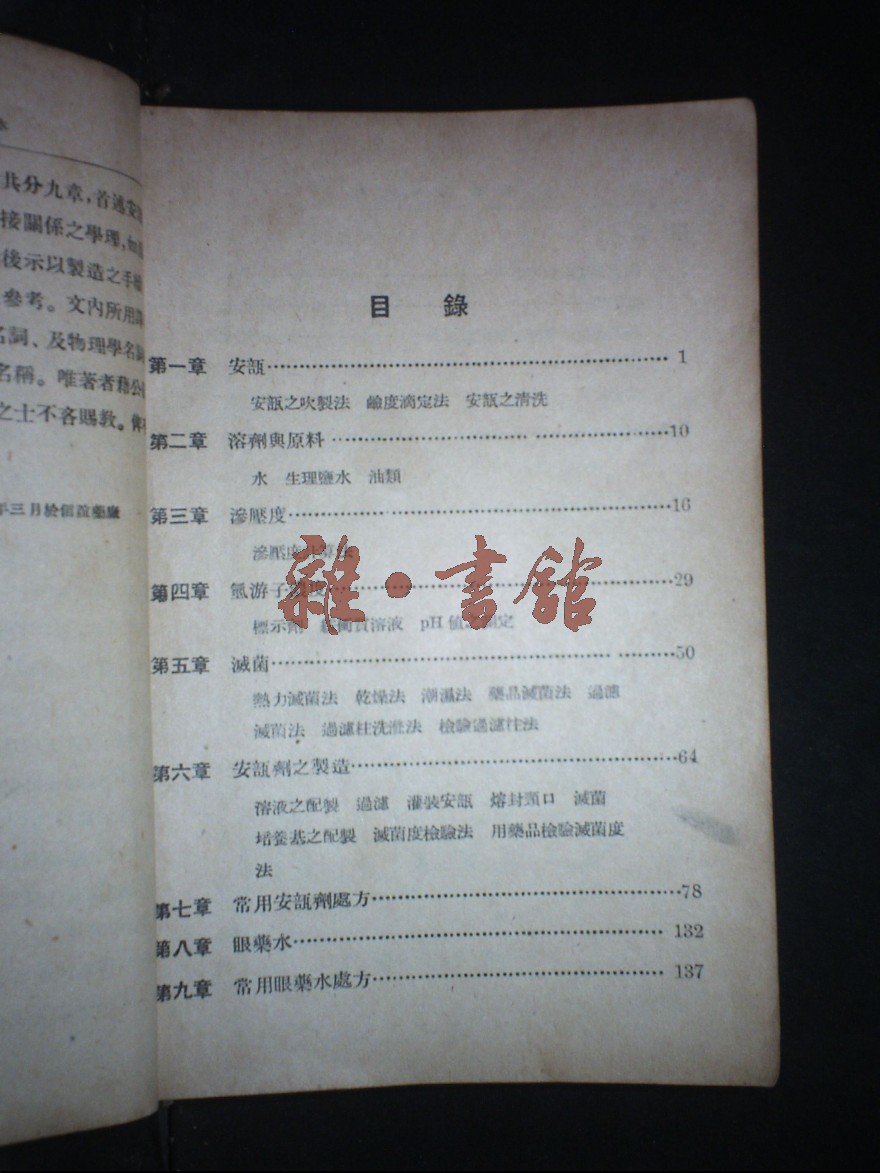 共分九章，首述安
接關係之學理，如
後示以製造之手
參考。文內所用
名詞、及物理學名詞
名稱。唯著者
之士不吝賜教。
年三月於
目 錄
第一章 安瓿……1
安瓿之吹製法 鹼度滴定法 安瓿之清洗
第二章 溶劑與原料……10
水 生理鹽水 油類
第三章 滲壓度……16
滲壓度
第四章 氫游子……29
標示劑 溶液 pH 值 定
第五章 滅菌……50
熱力滅菌法 乾燥法 潮濕法 藥品滅菌法 過濾
滅菌法 過濾柱洗滌法 檢驗過濾柱法
第六章 安瓿劑之製造……64
溶液之配製 過濾 灌裝安瓿 熔封頸口 滅菌
培養基之配製 滅菌度檢驗法 用藥品檢驗滅菌度
法
第七章 常用安瓿劑處方……78
第八章 眼藥水……132
第九章 常用眼藥水處方……137
雜·書館